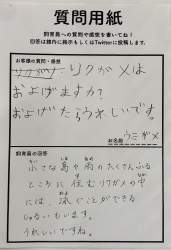 質問用紙
飼育員への質問や感想を書いてね!
回答は館内に掲示もしくはTwitterに投稿します.
お客様の質問・感想
リクガメは
およげますか?
およげたらウれしいです。
お名前 ウミガメ
飼育員の回答
小さな島や雨のたくさんふる
ところに住むリクガメの中
には、泳ぐことができる
しゅるいもいます。
うれしいですね。